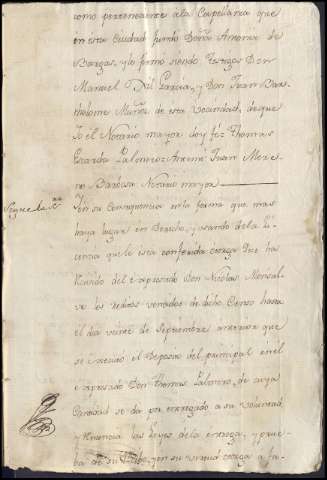 como perteneciente ala Capellania que
en esta Ciudad fundo Doña Antonia de
Bargas, y lo firmo siendo testigos Don
Manuel Gil Garcia, y Don Juan Bar-
tholome Muñoz de esta Vecindad, de que
Yo el Notario mayor doy fee Thomas
Lalomez Antemi Juan More-
no Barbosa Notario mayor
Sigue la
En su Consequencia en la forma que mas
haya lugar en Derecho, y usando dela li-
cencia que le esta conferida otorga que ha
Recivido del expresado Don Nicolas Monsal-
ve los reditos vencidos de dicho Censo hasta
el dia veinte de Septiembre anterior que
se executo el Deposito del principal en el
expresado Don Thomas Lalomez, de cuya
Cantidad se da por entregado a su voluntad
y Renuncia las Leyes dela entrega, y prue-
ba de su Recivo, y en su virtud otorga a fa-